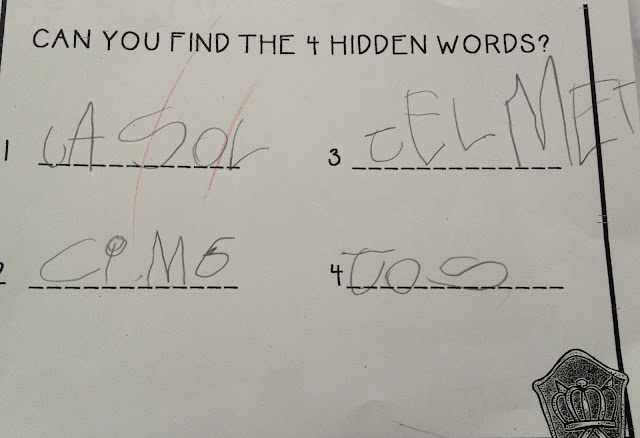 CAN YOU FIND THE 4 HIDDEN WORDS?
1 CASOL
3 tELMET
2
4 TOS